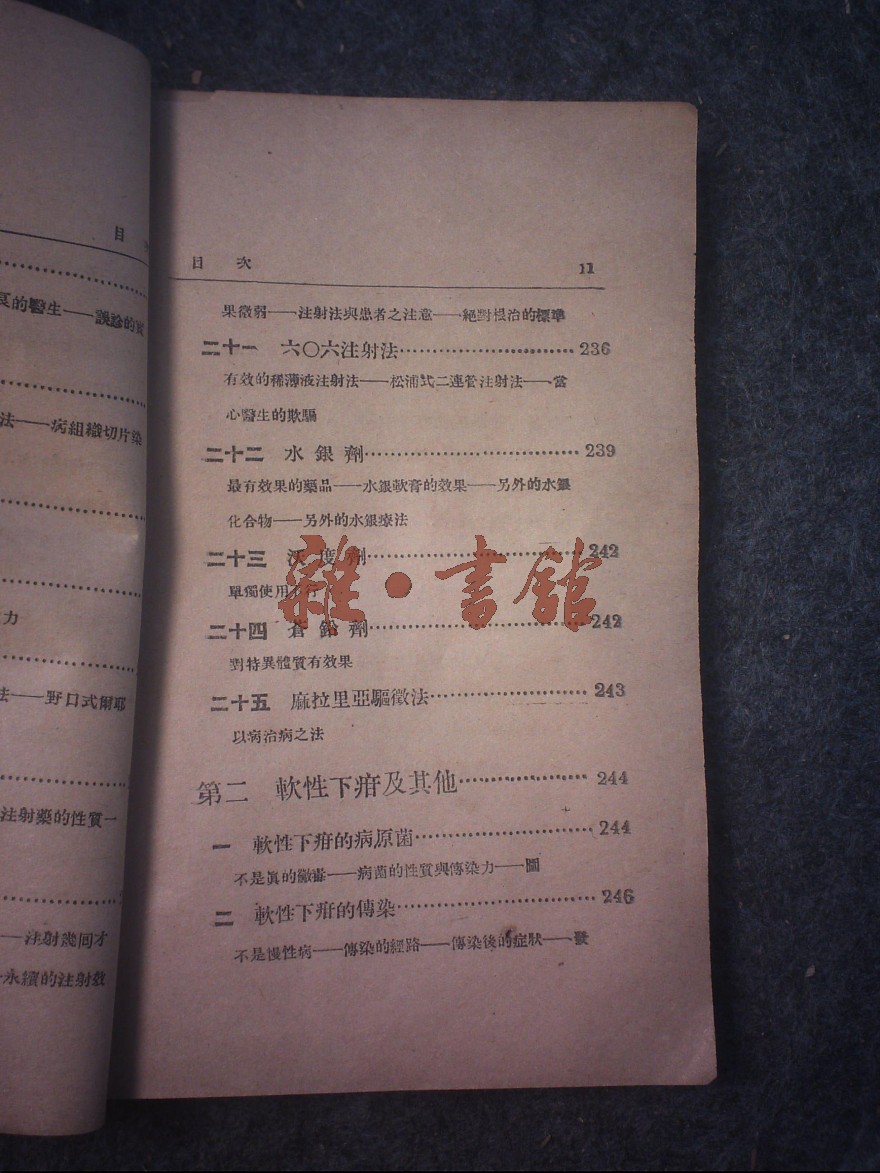 目 次
良的醫生——誤診的實
法——病組織切片染
力
法——野口式爾耶
注射藥的性質一
——注射幾回才
永續的注射效
目 次 11
果微弱——注射法與患者之注意——絕對根治的標準
二十一 六〇六注射法 236
有效的稀薄液注射法——松浦式二連管注射法——當
心醫生的欺騙
二十二 水銀劑 239
最有效果的藥品——水銀軟膏的效果——另外的水銀
化合物——另外的水銀療法
二十三 沃度劑 242
單獨使用不行
二十四 蒼鉛劑 242
對特異體質有效果
二十五 麻拉里亞驅黴法 243
以病治病之法
第二 軟性下疳及其他 244
一 軟性下疳的病原菌 244
不是眞的黴毒——病菌的性質與傳染力——圖
二 軟性下疳的傳染 246
不是慢性病——傳染的經路——傳染後的症狀——發
雜·書館